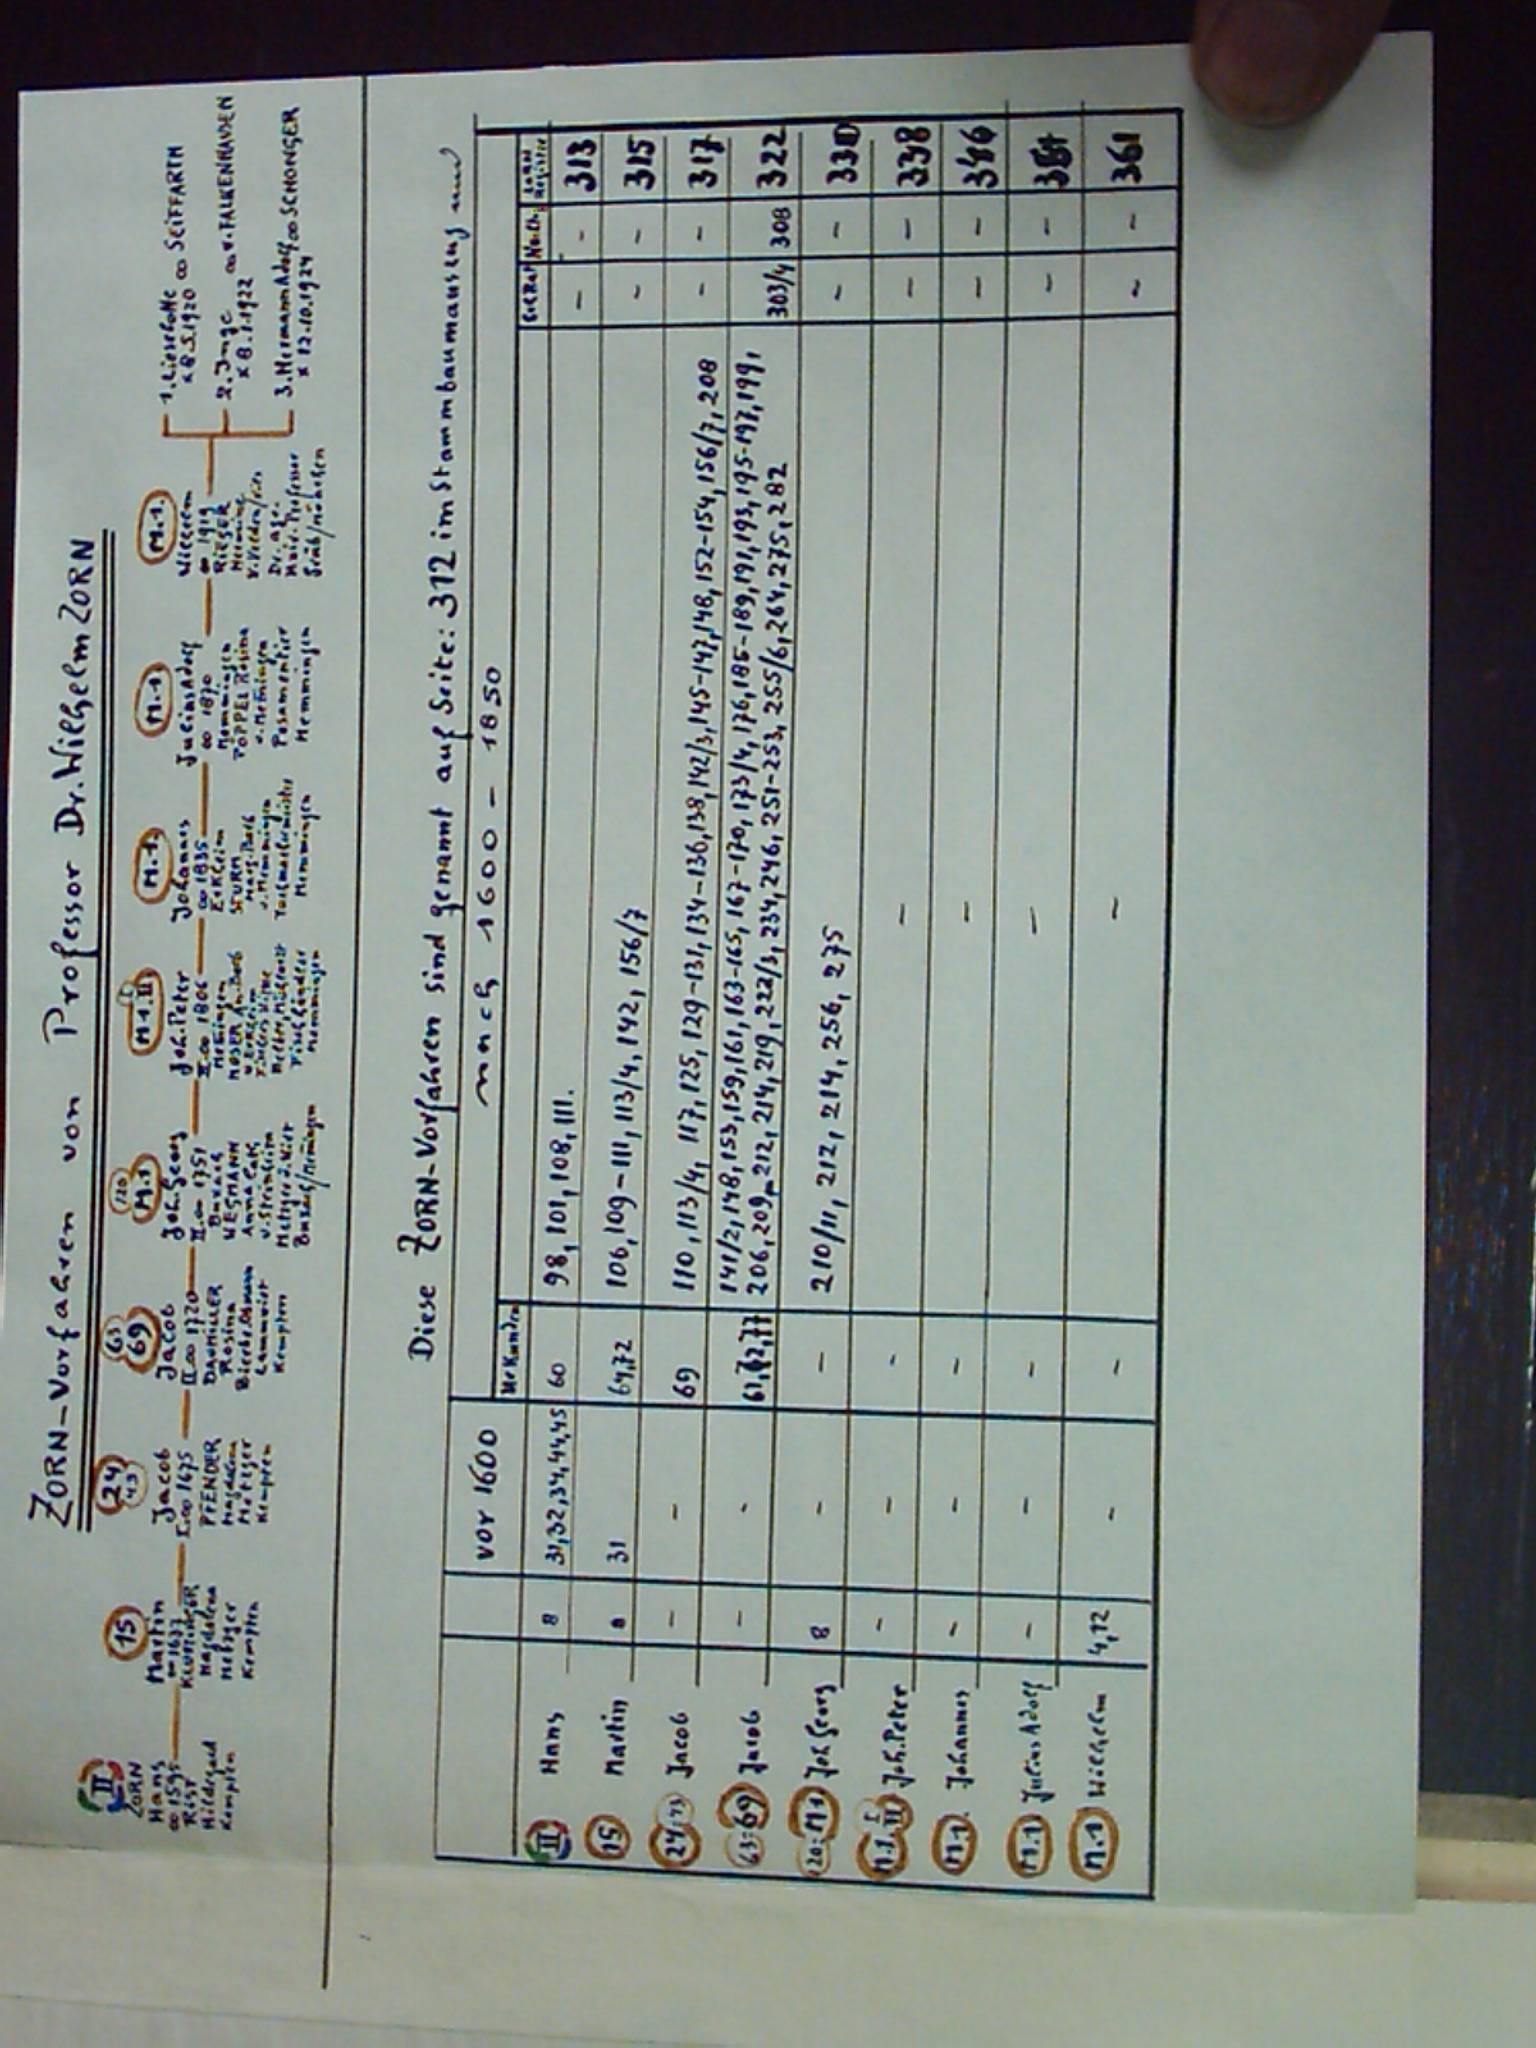 ZORN-Vorfahren von Professor Dr. Wilhelm ZORN
II
ZORN
Hans
∞ 1595
RIST
Hildegard
Kempten
15
Martin
∞ 1637
Magdalena
Metzger
Kempten
24
43
Jacob
I.∞ 1675
PFENDER
Magdalena
Metzger
Kempten
63
69
Jacob
II.∞ 1720
DAUMILLER
Rosina
Kempten
120
M.1
Joh. Georg
II.∞ 1751
Buxach
WEGMANN
Anna Cath.
v. Steinheim
M.1.II
Joh. Peter
II.∞ 1806
MOSER An. Barb
Memmingen
M.1.
Johannes
∞ 1835
Erkheim
STURM
Marg. Barb
v. Memmingen
Memmingen
M.1.
Julius Adolf
∞ 1870
Memmingen
POPPEL Rosina
v. Memmingen
Posamentier
Memmingen
M.1.
Wilhelm
∞ 1919
RIEGER
Hermine
Dr. agr.
Univ. Professor
1. Lieselotte ∞ SEIFFARTH
* 8.5.1920
2. Inge ∞ v. FALKENHAUSEN
* 8.1.1922
3. Hermann Adolf ∞ SCHONGER
* 12.10.1924
Diese ZORN-Vorfahren sind genannt auf Seite: 312 im Stammbaumauszug und
vor 1600
nach 1600 - 1850
Urkunden
Nachtr.
Register
II Hans 8 31,32,34,44,45 60 98, 101, 108, 111. - - 313
15 Martin 8 31 64,72 106, 109-111, 113/4, 142, 156/7 - - 315
24:43 Jacob - - 69 110, 113/4, 117, 125, 129-131, 134-136, 138, 142/3, 145-147, 148, 152-154, 156/7, 208 - - 317
63:69 Jacob - - 141/2, 148, 153, 159, 161, 163-165, 167-170, 173/4, 176, 185-189, 191, 193, 195-197, 199,
206, 209-212, 214, 219, 222/3, 234, 246, 251-253, 255/6, 264, 275, 282 303/4 308 322
120:M1 Joh. Georg 8 - - 210/11, 212, 214, 256, 275 - - 330
M.1.II Joh. Peter - - - - - - 338
M.1. Johannes - - - - - - 346
M.1 Julius Adolf - - - - - -
M.1 Wilhelm 4,12 - - - - - 361